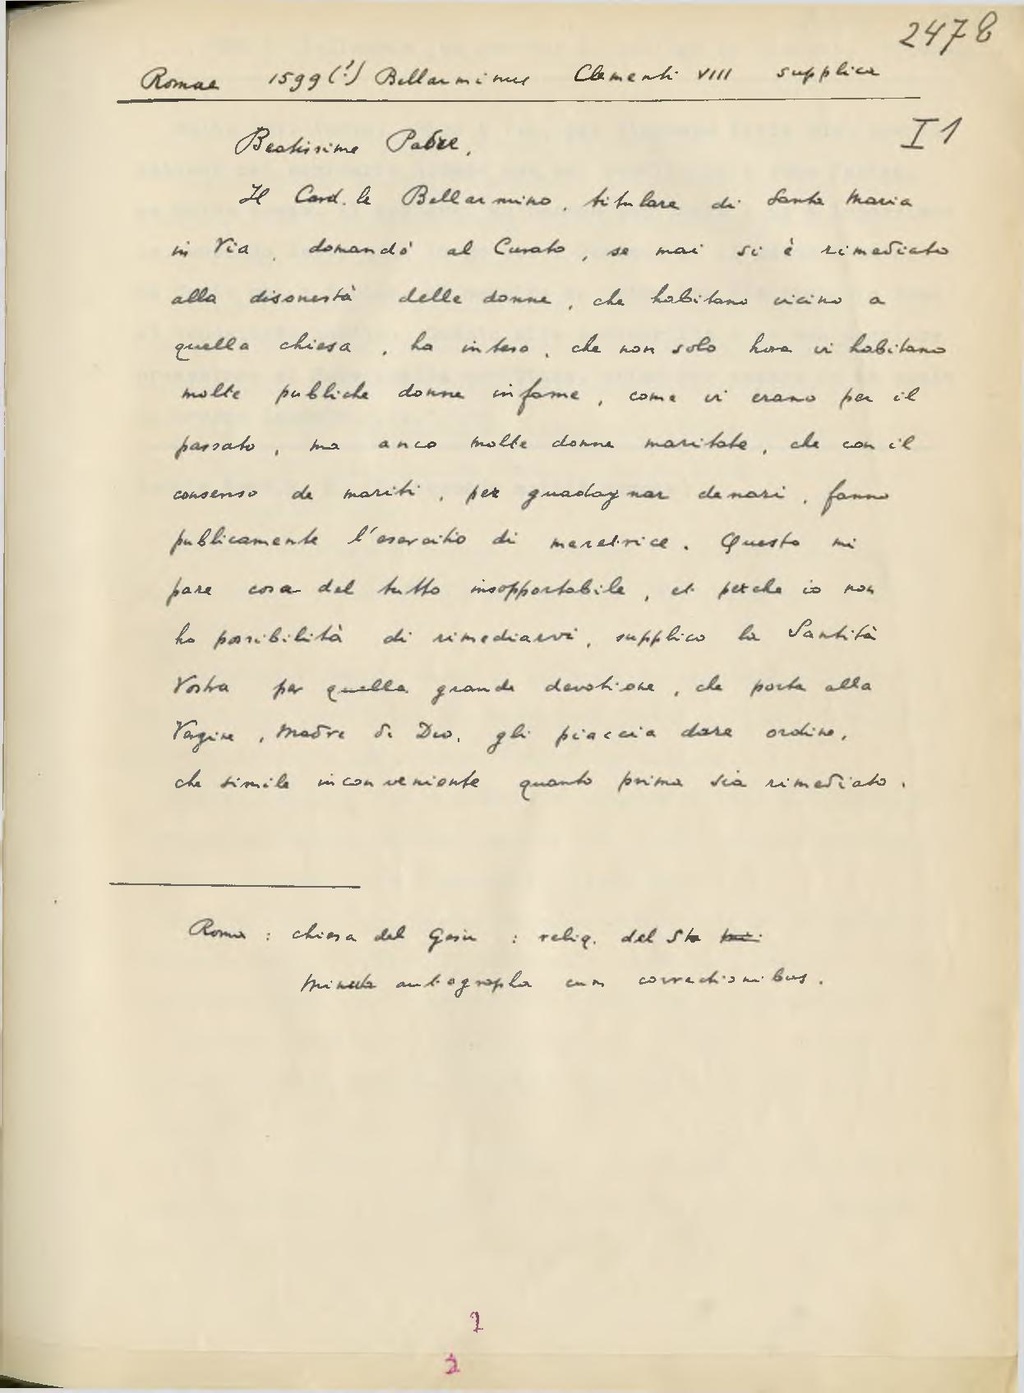 247 8
Romae 1599 (?) Bellarminus Clementi VIII supplica
I 1
Beatissime Padre,
Il Card.le Bellarmino, titulare di Santa Maria
in Via, domandò al Curato, se mai si è rimediato
alla disonestà delle donne, che habitano vicino a
quella chiesa, ha inteso, che non solo hora vi habitano
molte publiche donne infame, come vi erano per il
passato, ma anco molte donne maritate, che con il
consenso de mariti, per guadagnar denari, fanno
publicamente l'esercitio di meretrice. Questo mi
pare cosa del tutto insopportabile, et perche io non
ho possibilità di rimediarvi, supplico la Santità
Vostra per quella grande devotione, che porta alla
Vergine, Madre di Dio, gli piaccia dare ordine,
che simile inconveniente quanto prima sia rimediato.
Roma : chiesa del Gesù : reliq. del Sto
Minuta autographa cum correctionibus.
1
2